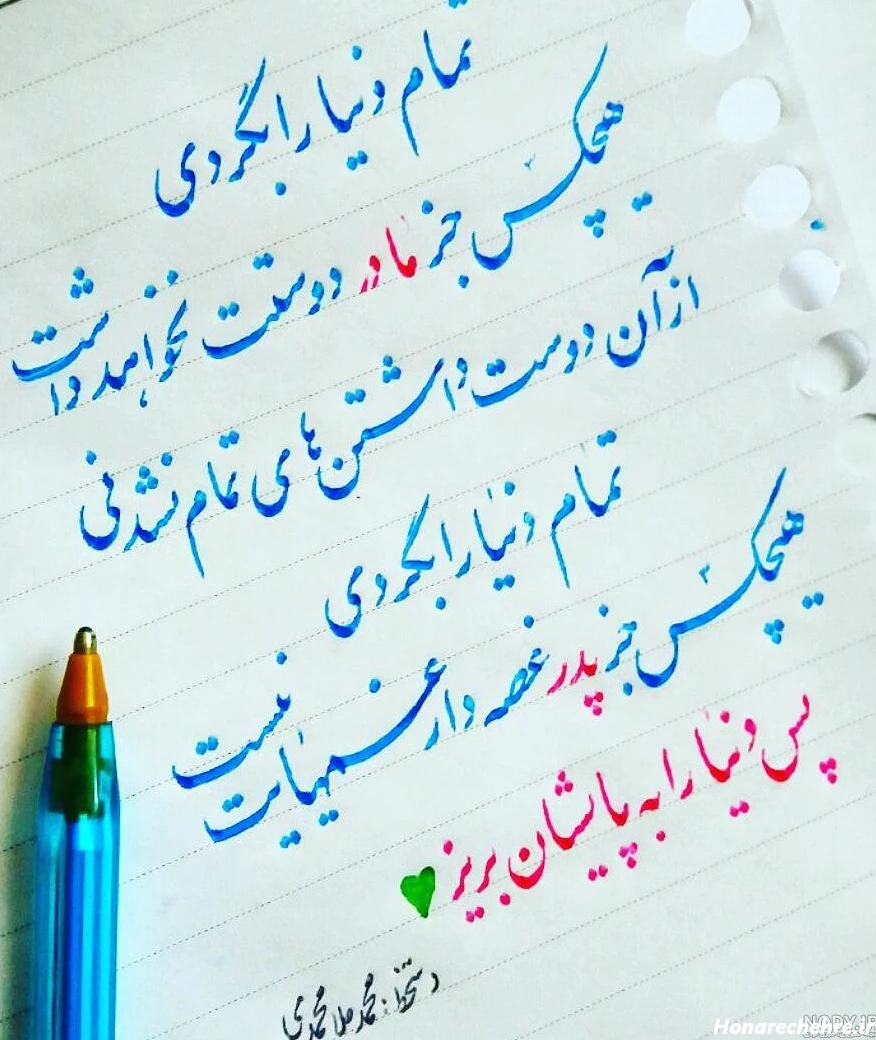 تمام دنیا را بگردی
هیچکس جز مادر دوستت نخواهد داشت
از آن دوست داشتن های تمام نشدنی
تمام دنیا را بگردی
هیچکس جز پدر غصه دار غمهایت نیست
پس دنیا را به پایشان بریز
دستخط: محمد ملامحمدی
Honarechehre.ir